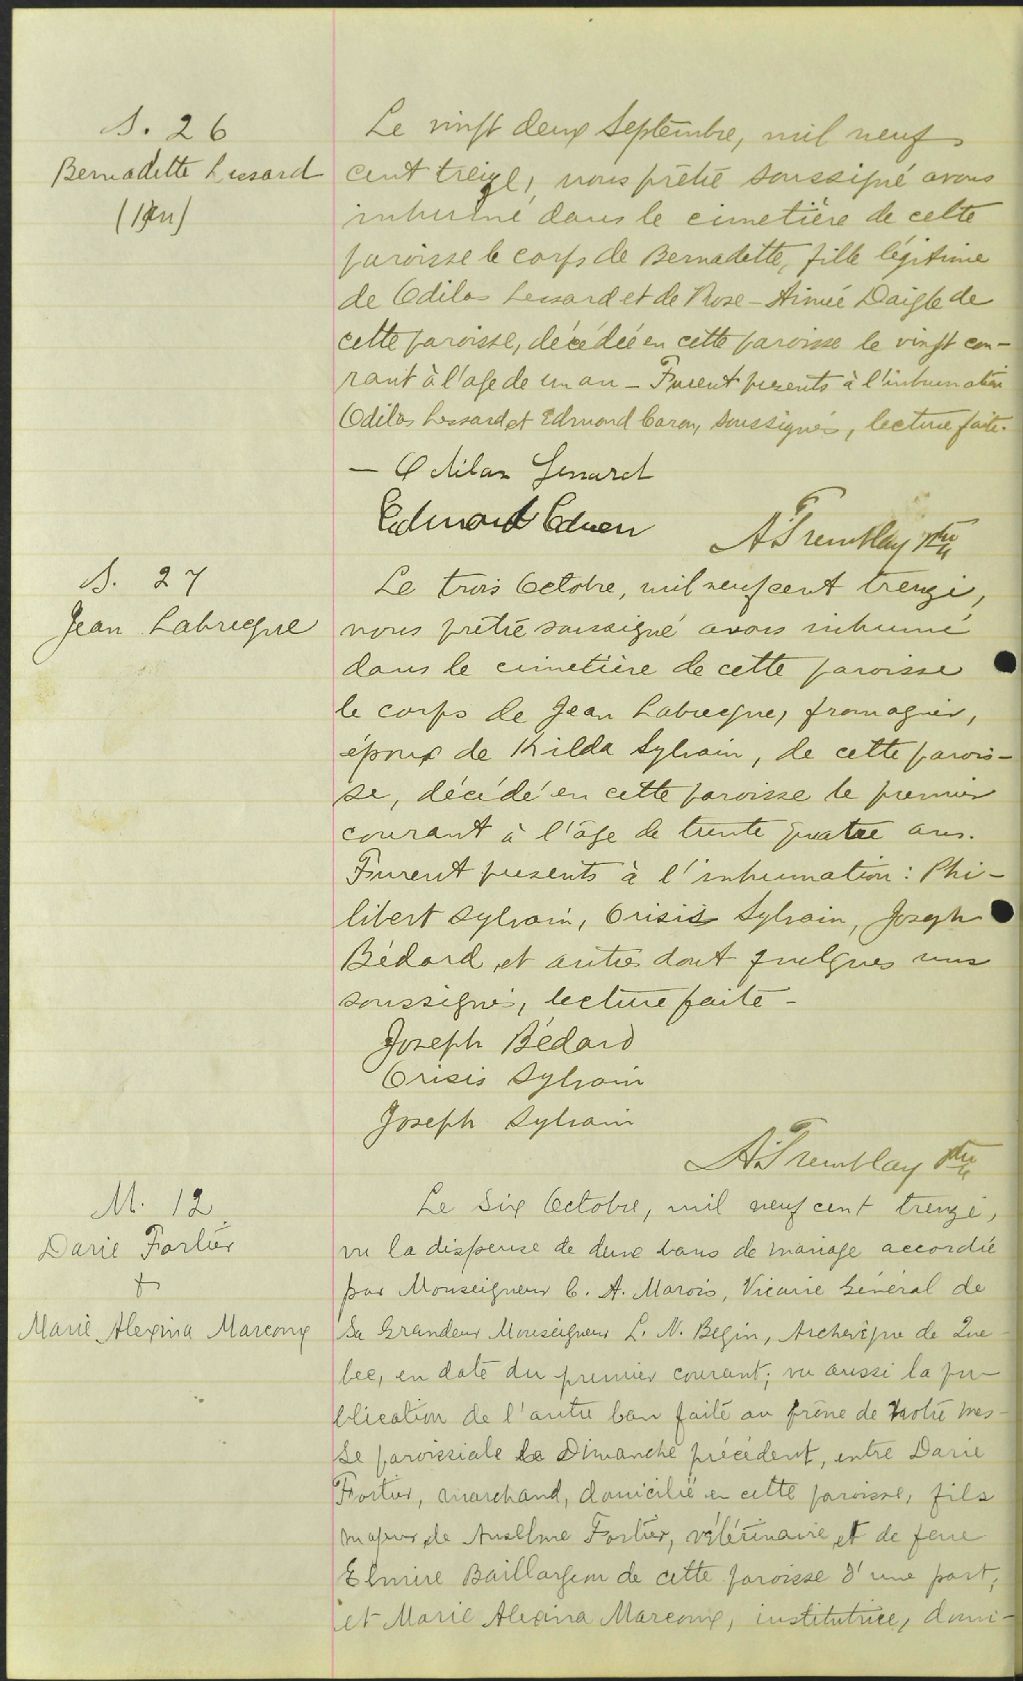 S. 26
Bernadette Lessard
(1 an)
Le vingt deux Septembre, mil neuf
cent treize, nous prêtre soussigné avons
inhumé dans le cimetière de cette
paroisse le corps de Bernadette, fille légitime
de Odilas Lessard et de Rose-Aimée Daigle de
cette paroisse, décédée en cette paroisse le vingt cou-
rant à l'age de un an - Furent presents à l'inhumation
Odilas Lessard et Edmond Caron, soussignés, lecture faite.
- Odilas Lessard
Edmond
A. Tremblay ptre
S. 27
Jean Labrecque
Le trois Octobre, mil neuf cent treize,
nous prêtre soussigné avons inhumé
dans le cimetière de cette paroisse
le corps de Jean Labrecque, fromagier,
époux de Kilda Sylvain, de cette parois-
se, décédé en cette paroisse le premier
courant à l'âge de trente quatre ans.
Furent presents à l'inhumation : Phi-
libert Sylvain, Crisis Sylvain, Joseph
Bédard et autres dont quelques uns
soussignés, lecture faite -
Joseph Bédard
Crisis Sylvain
Joseph Sylvain
A. Tremblay ptre
M. 12
Darie Fortier
+
Marie Alexina Marcoux
Le six Octobre, mil neuf cent treize,
vu la dispense de deux bans de mariage accordée
par Monseigneur C. A. Marois, Vicaire Général de
Sa Grandeur Monseigneur L. N. Begin, Archevêque de Qué-
bec, en date du premier courant; vu aussi la pu-
blication de l'autre ban faite au prône de notre mes-
se paroissiale le Dimanche précédent, entre Darie
Fortier, marchand, domicilié en cette paroisse, fils
majeur de Anselme Fortier, vétérinaire, et de feue
Elmire Baillargeon de cette paroisse d'une part;
et Marie Alexina Marcoux, institutrice, domi-